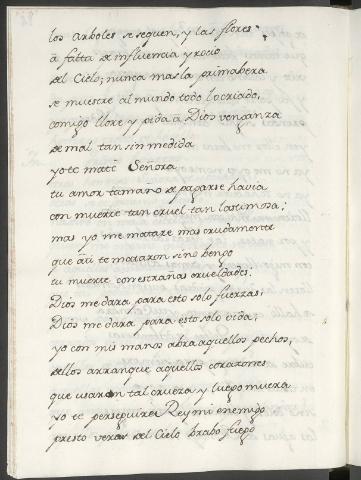 los arboles se sequen, y las flores
à falta de influencia y rocio
del Cielo; nunca mas la primabera
se muestre al mundo todo lo criado,
comigo llore y pida à Dios venganza
de mal tan sin medida
yo te matè Señora
tu amor tamaño de pagarse havia
con muerte tan cruel tan lastimosa;
mas yo me matare mas crudamente
que à ti te mataron si no bengo
tu muerte con estrañas crueldades.
Dios me dara para esto solo fuerzas;
Dios me dara para esto solo vida;
yo con mis manos abra aquellos pechos,
dellos arranque aquellos corazones
que usaron tal crueza y luego muera
yo te perseguire Rey mi enemigo
presto vera del Cielo brabo fuego